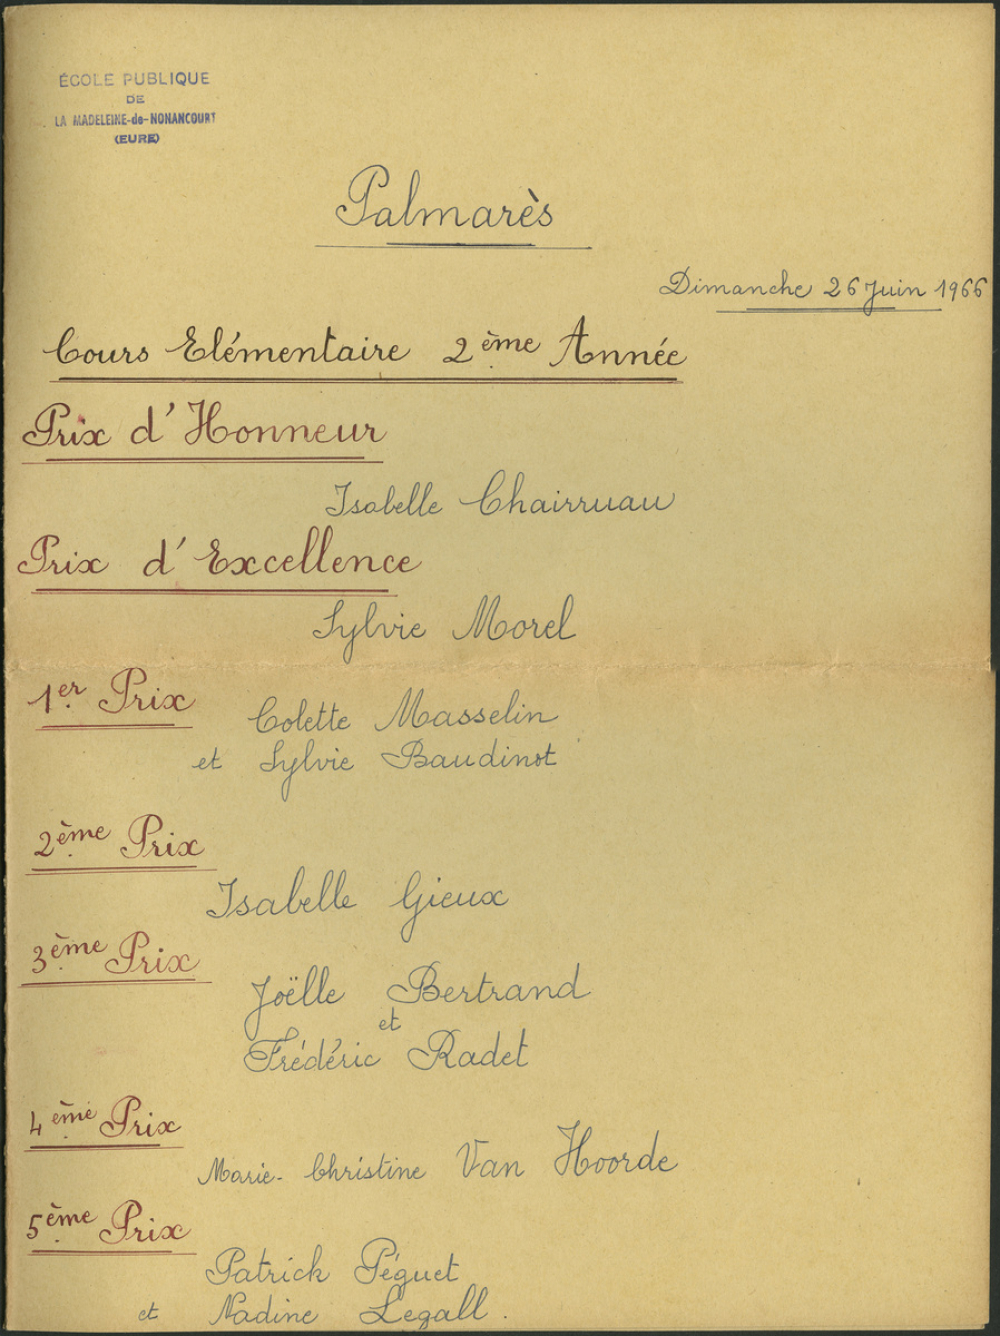 ÉCOLE PUBLIQUE
DE
LA MADELEINE-de-NONANCOURT
(EURE)
Palmarès
Dimanche 26 Juin 1966
Cours Elémentaire 2ème Année
Prix d'Honneur
Isabelle Chairruau
Prix d'Excellence
Sylvie Morel
1er Prix
Colette Masselin
et Sylvie Baudinot
2ème Prix
Isabelle Gieux
3ème Prix
Joëlle Bertrand
et
Frédéric Radet
4ème Prix
Marie-Christine Van Hoorde
5ème Prix
Patrick Péguet
et Nadine Legall.